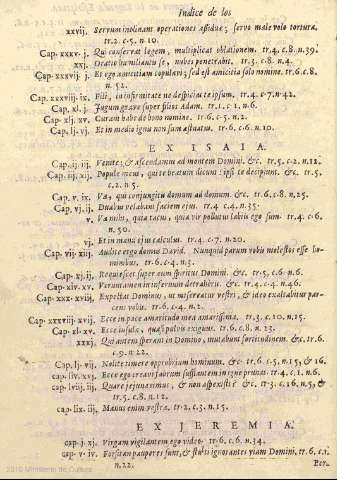 Indice de los
xxvij. Servum inclinant operationes assiduæ; servo malevolo tortura.
tr. 2. c. 5. n. 10.
Cap. xxxv. j. Qui conservat legem, multiplicat oblationem. tr. 4. c. 8. n. 39.
xxj. Oratio humiliantis se, nubes penetrabit. tr. 3. c. 8. n. 4.
Cap. xxxvij. j. Et ego amicitiam copulavi; sed est amicitia solo nomine. tr. 6. c. 8.
n. 52.
Cap. xxxviij. ix. Fili, in infirmitate ne despicias te ipsum. tr. 4. c. 7. n. 42.
Cap. xl. j. Jugum grave super filios Adam. tr. 1. c. 1. n. 6.
Cap. xlj. xv. Curam habe de bono nomine. tr. 6. c. 5. n. 2.
Cap. lj. vij. Et in medio ignis non sum æstuatus. tr. 6. c. 6. n. 10.
EX ISAIA.
Cap. ij. iij. Venite; & ascendamus ad montem Domini, &c. tr. 5. c. 2. n. 12.
Cap. iij. xij. Popule meus, qui te beatum dicunt; ipsi te decipiunt, &c. tr. 5.
c. 2. n. 5.
Cap. v. ix. Væ, qui conjungitis domum ad domum. tr. 6. c. 8. n. 25.
Cap. vj. ij. Duabus velabant faciem ejus. tr. 4. c. 4. n. 35.
v. Væ mihi, quia tacui, quia vir pollutus labiis ego sum. tr. 4. c. 6.
n. 50.
vj. Et in manu ejus calculus. tr. 4. c. 7. n. 20.
Cap. vij. xiij. Audite ergo domus David. Nunquid parum vobis molestos esse hominibus.
tr. 6. c. 4. n. 3.
Cap. xj. ij. Requiescet super eum spiritus Domini, &c. tr. 5. c. 6. n. 6.
Cap. xiv. xv. Verumtamen in infernum detraheris. &c. tr. 4. c. 4. n. 46.
Cap. xxx. xviij. Expectat Dominus, ut misereatur vestri; & ideo exaltabitur parcens
vobis. tr. 6. c. 2. n. 4.
Cap. xxxviij. xvij. Ecce in pace amaritudo mea amarissima. tr. 3. c. 10. n. 25.
Cap. xl. xv. Ecce insulæ, quasi pulvis exiguus. tr. 6. c. 8. n. 23.
xxxj. Qui autem sperant in Domino, mutabunt fortitudinem. &c. tr. 6.
c. 9. n. 22.
Cap. lj. vij. Nolite timere opprobrium hominum. &c. tr. 6. c. 5. n. 15. & 16.
Cap. liv. xvj. Ecce ego creavi fabrum sufflantem in igne prunas. tr. 4. c. 1. n. 6.
Cap. lviij. iij. Quare jejunavimus, & non aspexisti? &c. tr. 3. c. 16. n. 5. &
tr. 5. c. 8. n. 12.
Cap. lix. iij. Manus enim vestræ. tr. 2. c. 3. n. 15.
EX JEREMIA.
cap. j. xj. Virgam vigilantem ego video. tr. 6. c. 6. n. 34.
cap. v. iv. Forsitan pauperes sunt, & stulti ignorantes viam Domini, tr. 6. c. 1.
n. 22. Per-
2010 Ministerio de Cultura